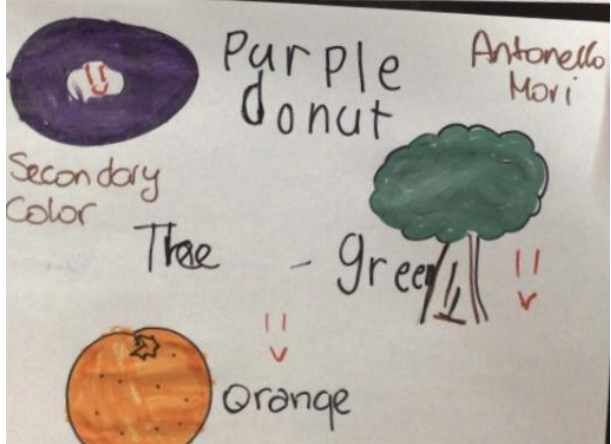 Purple
donut
Antonello
Mori
Secondary
Color
Tree - green
Orange